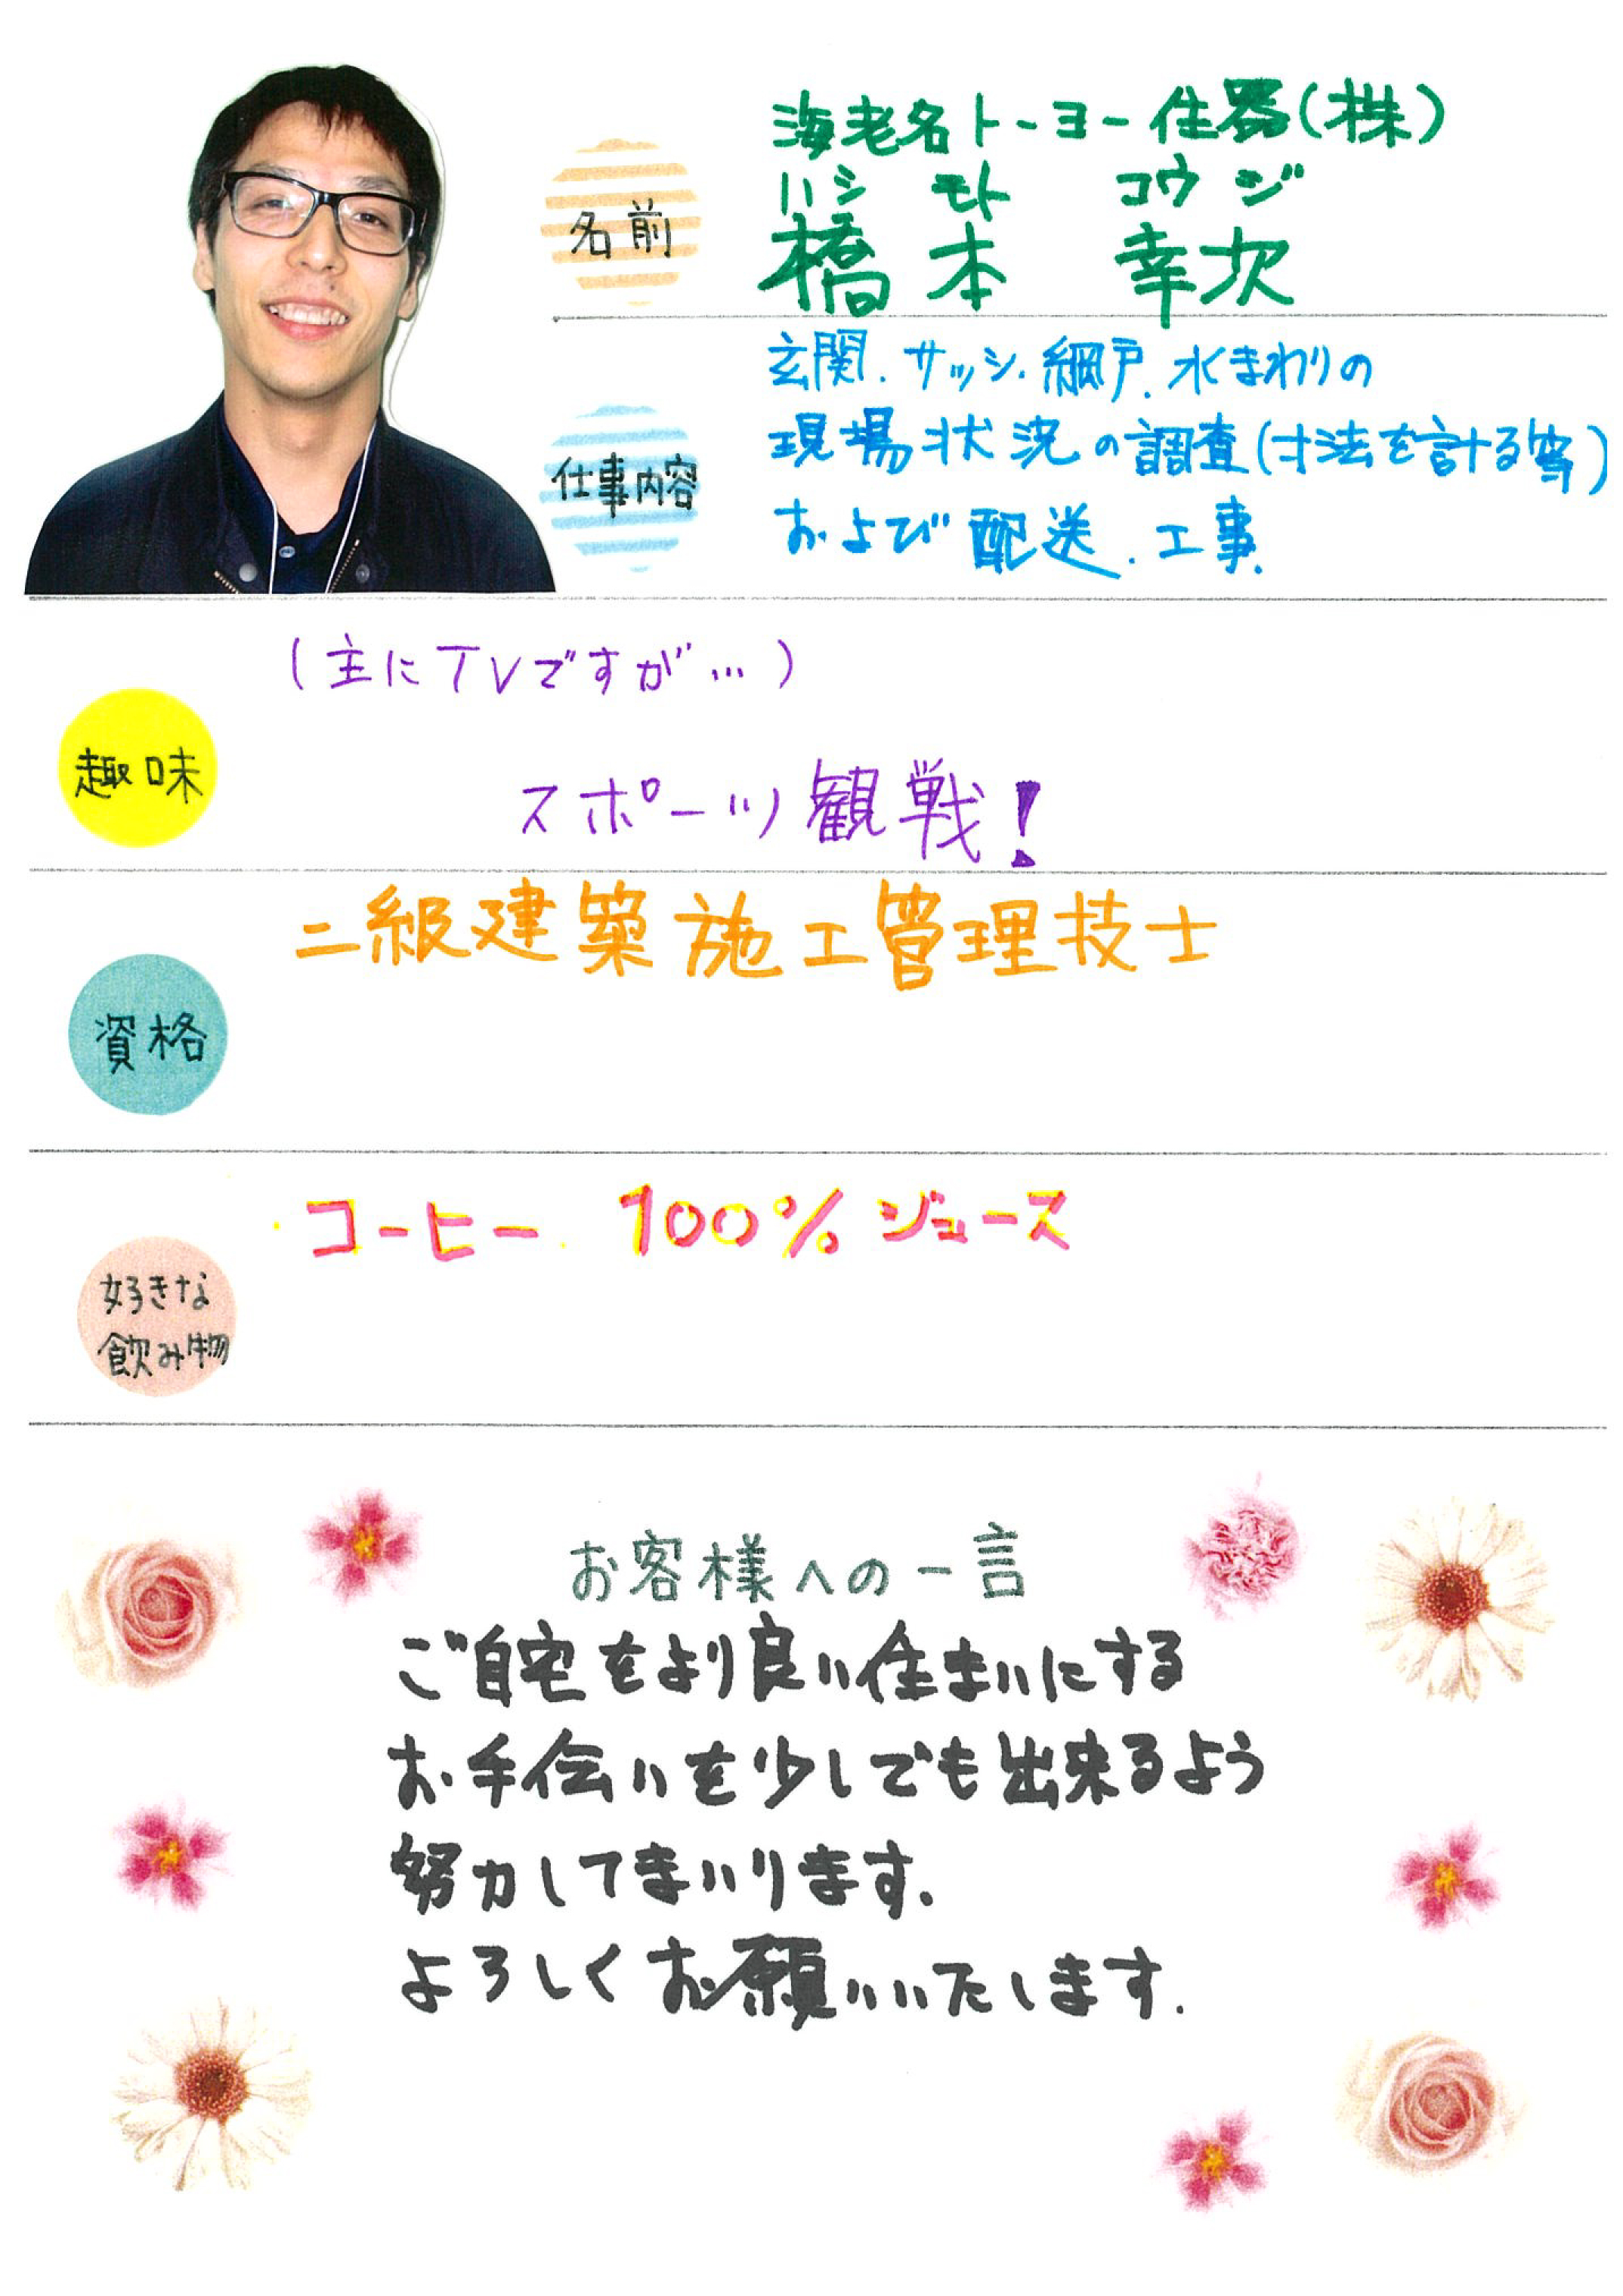 海老名トーヨー住器(株)
ハシ モト コウジ
名前
橋本 幸次
玄関.サッシ.網戸.水まわりの
現場状況の調査(寸法を計る等)
仕事内容
および配送.工事.
(主にTVですが…)
趣味
スポーツ観戦!
二級建築施工管理技士
資格
・コーヒー. 100%ジュース
好きな
飲み物
お客様への一言
ご自宅をより良い住まいにする
お手伝いを少しでも出来るよう
努力してまいります.
よろしくお願いいたします.